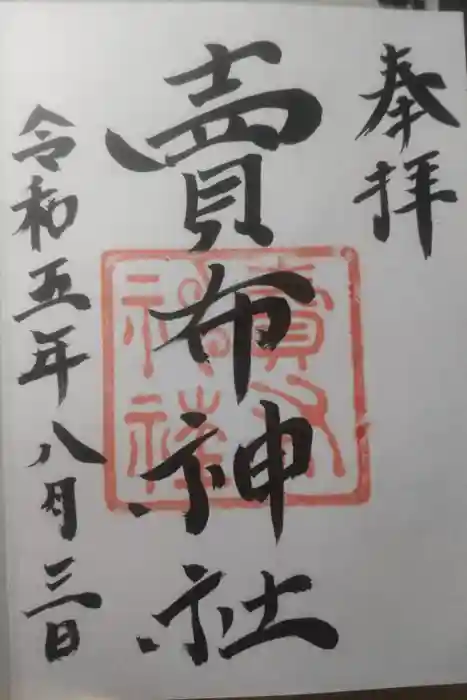 奉拝
賣布神社
令和五年八月三日
賣布神社